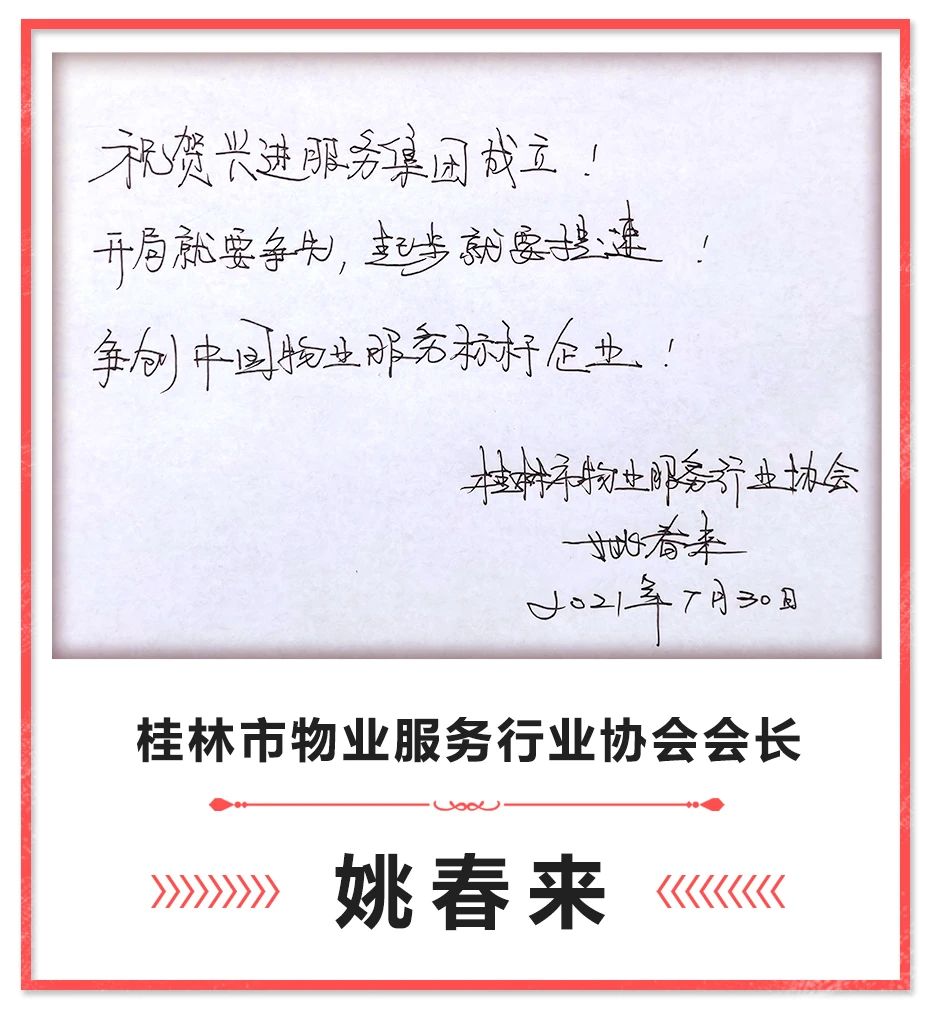 祝贺兴进服务集团成立！
开局就要争先，起步就要提速！
争创中国物业服务标杆企业！
桂林市物业服务行业协会
姚春来
2021年7月30日
桂林市物业服务行业协会会长
姚春来